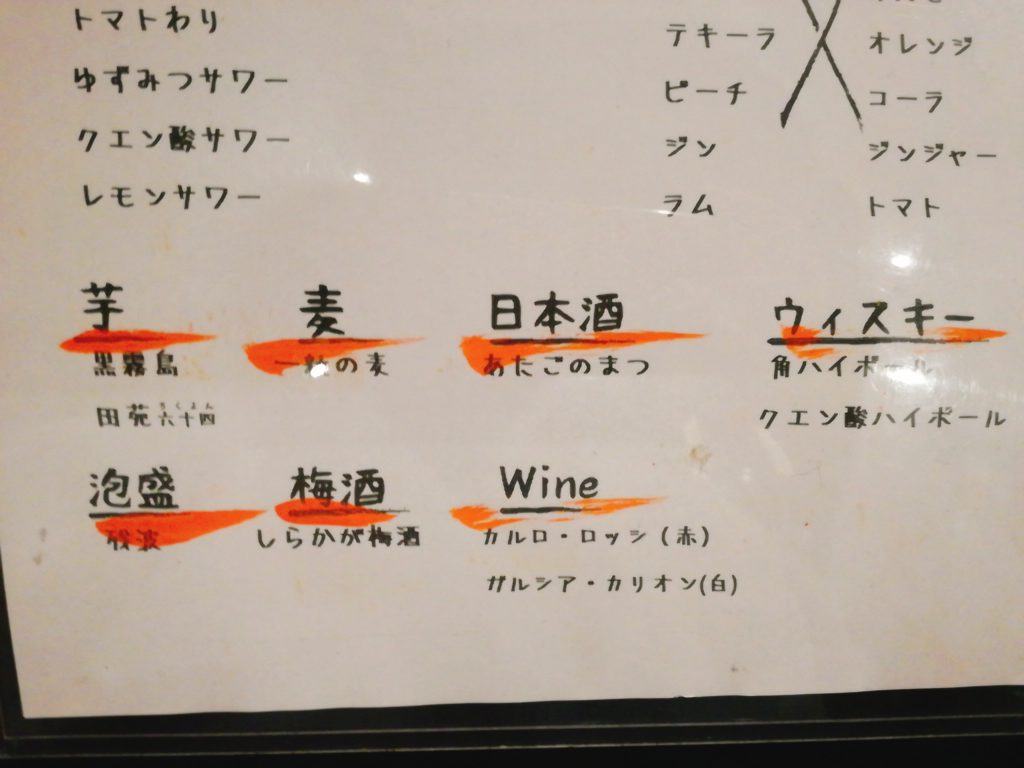 トマトわり
ゆずみつサワー
クエン酸サワー
レモンサワー
テキーラ
ピーチ
ジン
ラム
オレンジ
コーラ
ジンジャー
トマト
芋
黒霧島
田苑六十四
ろくよん
麦
一粒の麦
日本酒
あたごのまつ
ウィスキー
角ハイボール
クエン酸ハイボール
泡盛
残波
梅酒
しらかが梅酒
Wine
カルロ・ロッシ(赤)
ガルシア・カリオン(白)